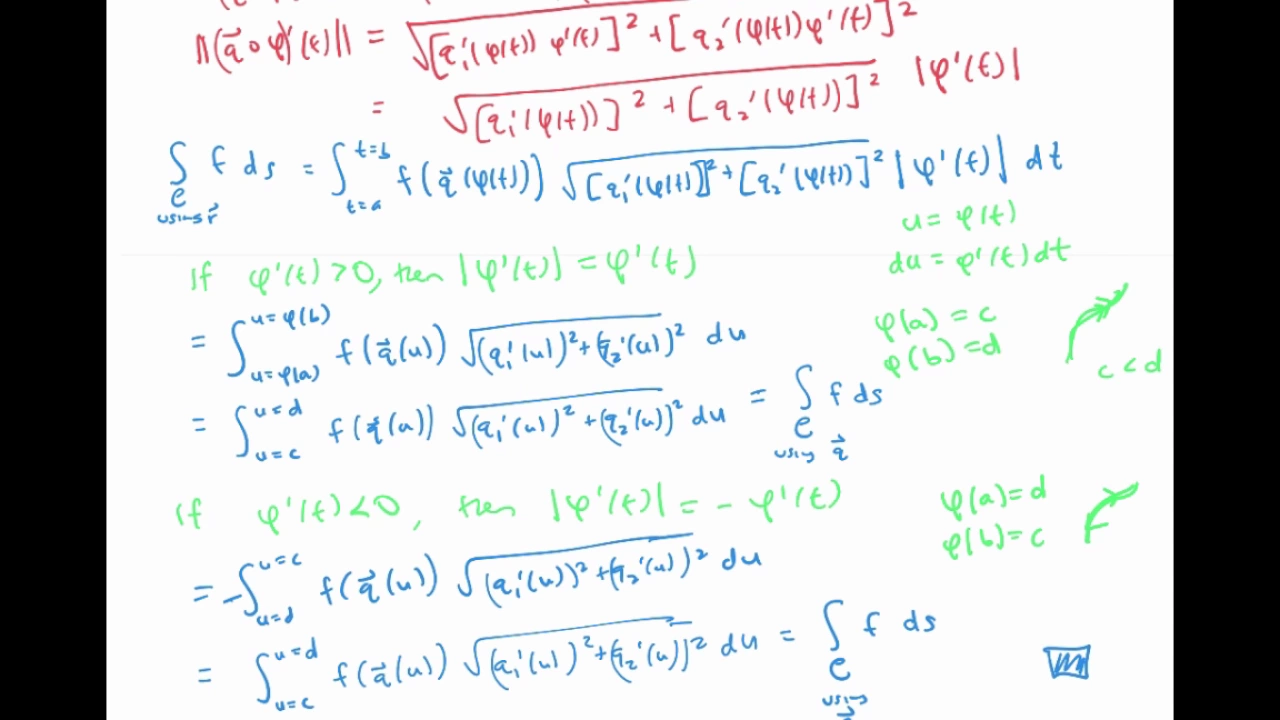 ‖(q⃗ ∘ φ)'(t)‖ = √([q₁'(φ(t)) φ'(t)]² + [q₂'(φ(t)) φ'(t)]²)
= √([q₁'(φ(t))]² + [q₂'(φ(t))]²) |φ'(t)|
∫_C f ds = ∫_{t=a}^{t=b} f(q⃗(φ(t))) √([q₁'(φ(t))]² + [q₂'(φ(t))]²) |φ'(t)| dt
using r⃗
u = φ(t)
du = φ'(t) dt
If φ'(t) > 0, then |φ'(t)| = φ'(t)
= ∫_{u=φ(a)}^{u=φ(b)} f(q⃗(u)) √((q₁'(u))² + (q₂'(u))²) du
φ(a) = c
φ(b) = d
c < d
= ∫_{u=c}^{u=d} f(q⃗(u)) √((q₁'(u))² + (q₂'(u))²) du = ∫_C f ds
using q⃗
If φ'(t) < 0, then |φ'(t)| = - φ'(t)
φ(a) = d
φ(b) = c
= -∫_{u=d}^{u=c} f(q⃗(u)) √((q₁'(u))² + (q₂'(u))²) du
= ∫_{u=c}^{u=d} f(q⃗(u)) √((q₁'(u))² + (q₂'(u))²) du = ∫_C f ds
using